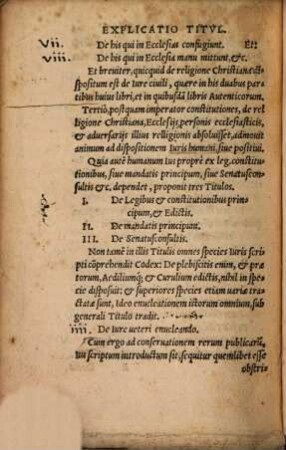 EXPLICATIO TITVL.
Vii. De his qui in Ecclesias confugiunt. Et
viii. De his qui in Ecclesia manu mittunt, &c.
Et breuiter, quicquid de religione Christiana di=
spositum est de iure ciuili, quere in his duabus par
tibus huius libri, et in quibusdã libris Autenticorum.
Tertiò, postquam imperator constitutiones, de re
ligione Christiana, Ecclesijs personis ecclesiasticis,
& aduersarijs illius religionis absoluisset, admouit
animum ad dispositionem iuris humani, siue positiui.
Quia autẽ humanum ius propriè ex leg. constitu=
tionibus, siue mandatis principum, siue Senatuscon
sultis &c. dependet, proponit tres Titulos.
I. De Legibus & constitutionibus prin=
cipum, & Edictis.
II. De mandatis principum.
III. De Senatusconsultis.
Non tamẽ in illis Titulis omnes species iuris scri
pti cõprehendit Codex: De plebiscitis enim, & præ
torum, Aedilium, & Curulium edictis, nihil in spe
cie disposuit: & superiores species etiam uariæ tra
ctatæ sunt, Ideo enucleationem istorum omnium, sub
generali Titulo tradit.
iiii. De iure ueteri enucleando.
Cum ergo ad conseruationem rerum publicarũ
ius scriptum introductum sit, sequitur quemlibet esse
obstri=